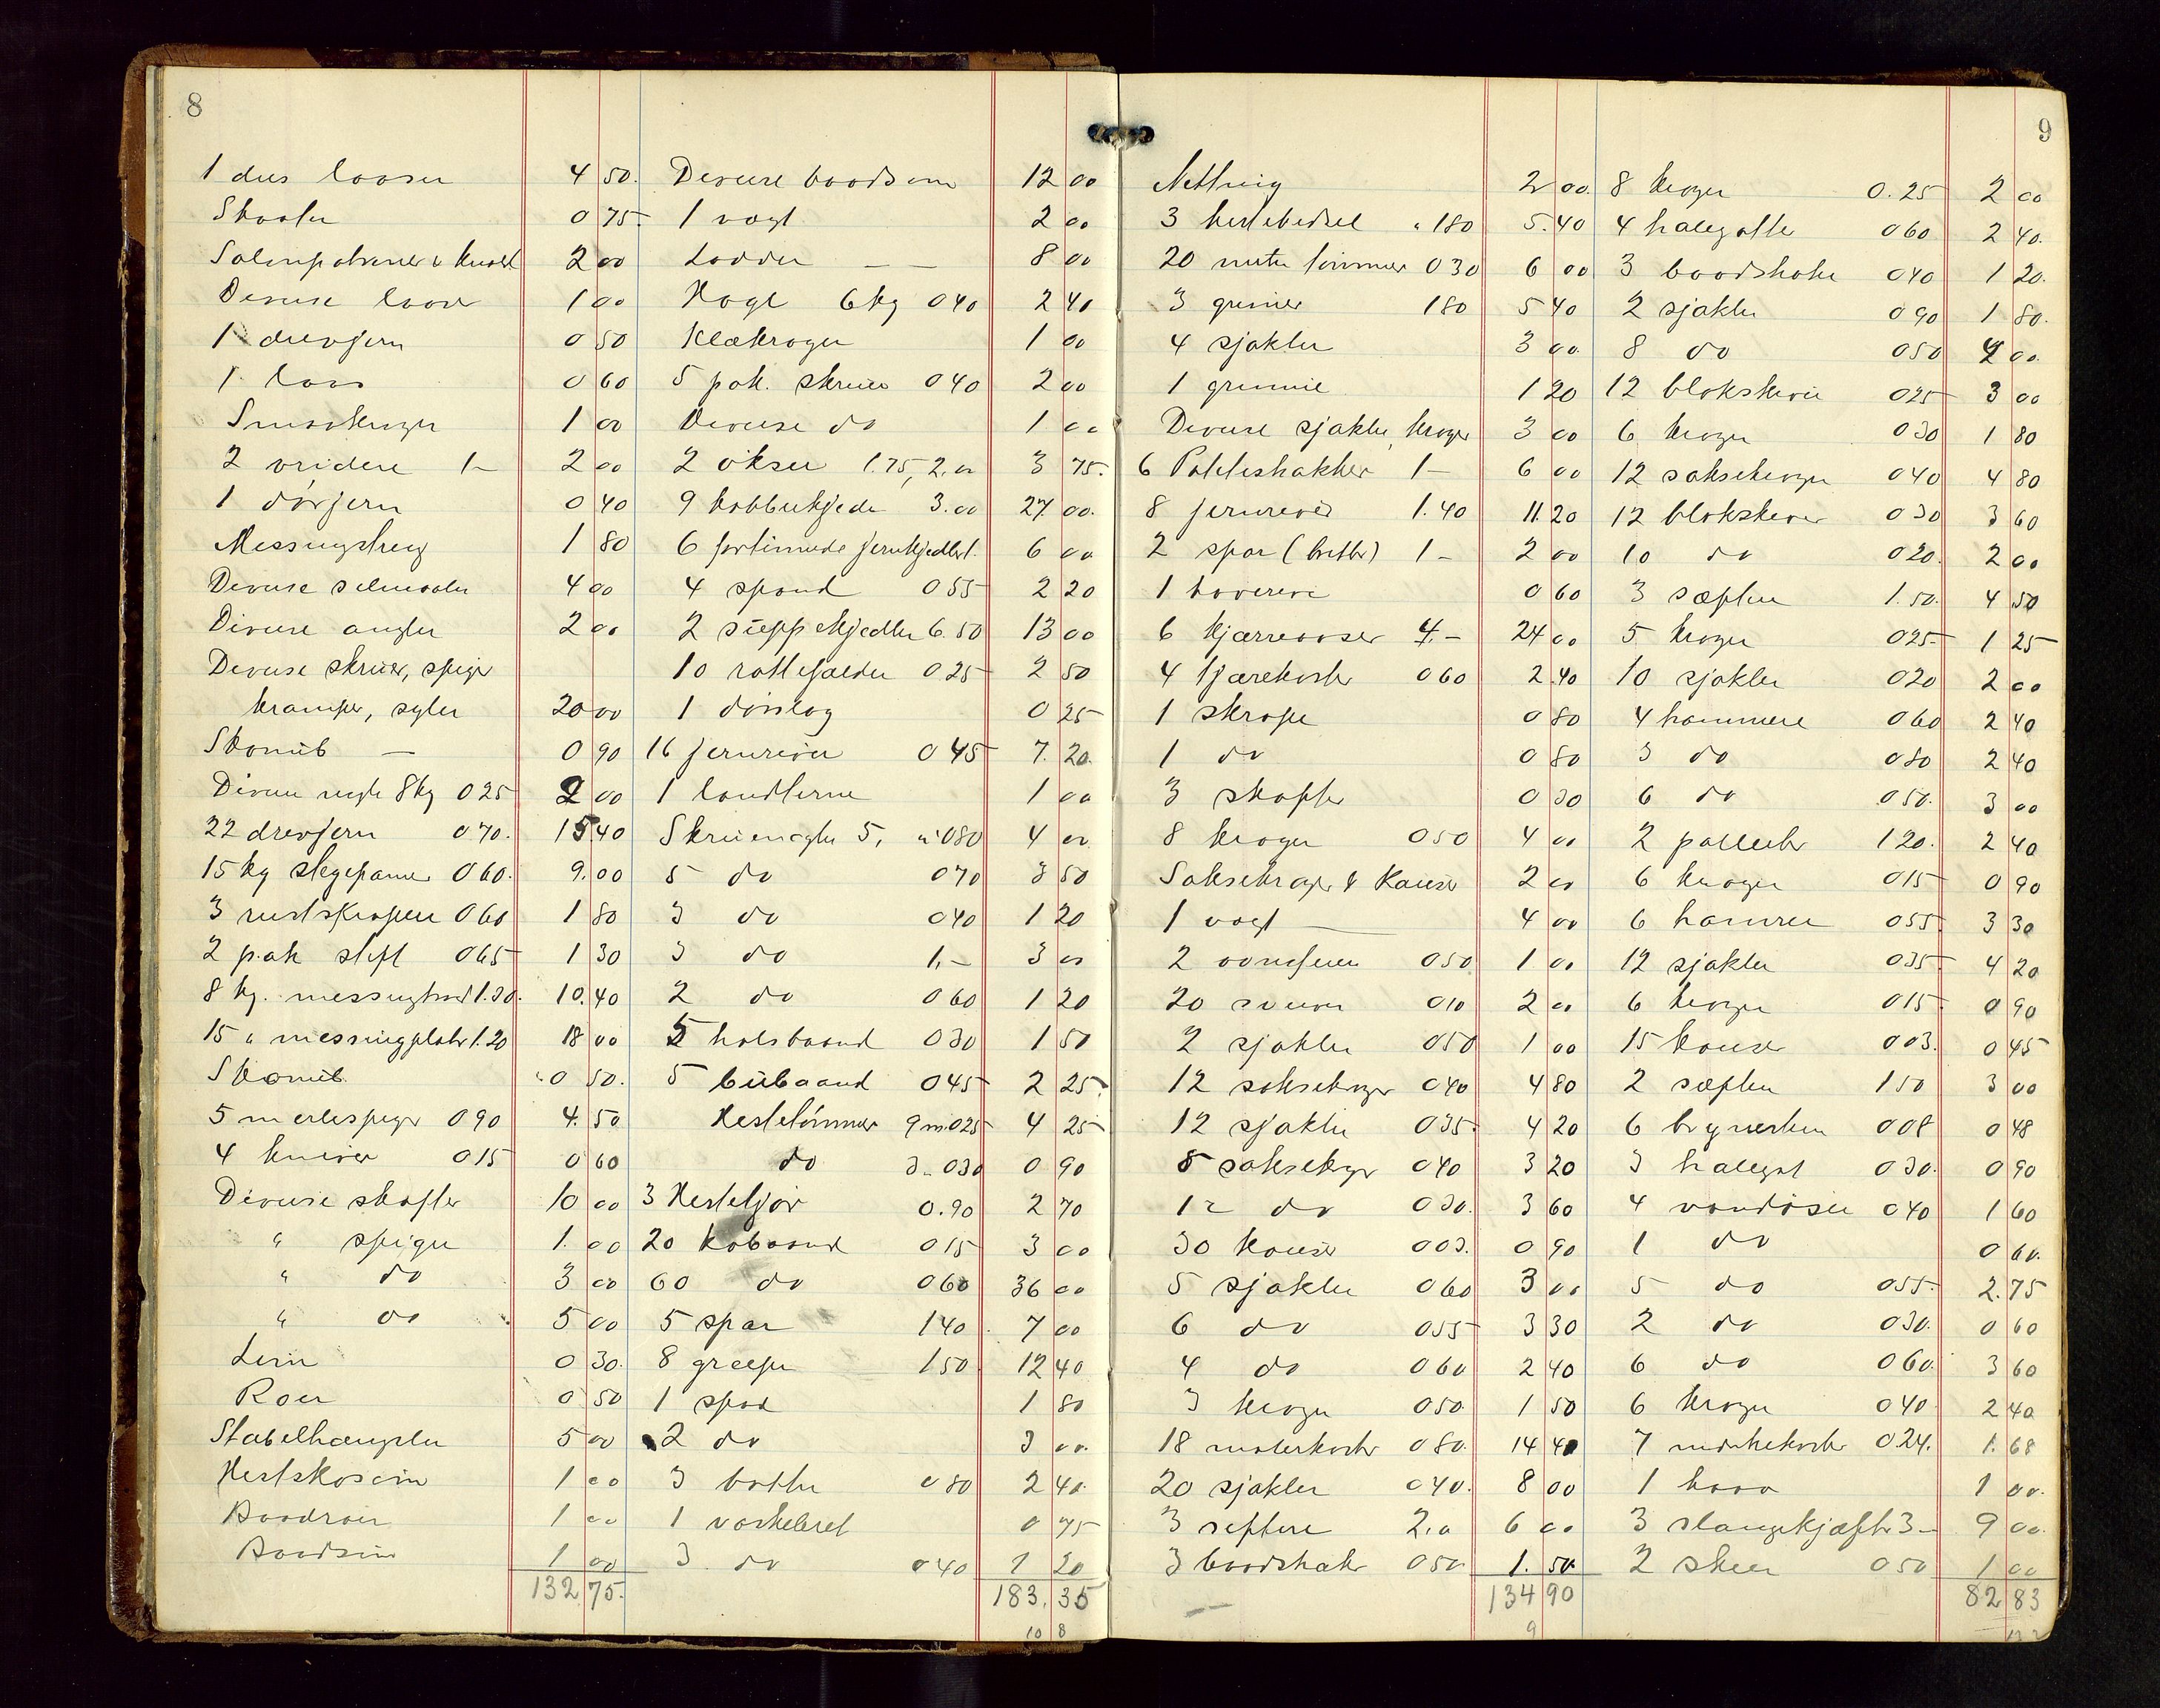 8
1 dus laaser 4 50.
Skaaler 0 75
Salonpatroner & 2 00
Diverse laaser 1 00
1 drevjern 0 50
1 laas 0 60
1 00
2 vridere 1- 2 00
1 dörjern 0 40
Messingstreng 1 80
Diverse 4 00
Diverse angler 2 00
Diverse skruer, spiger
kramper, syler 20 00
Skonüb — 0 90
Diverse negle 8 kg 0 25 2 00
22 drevjern 0 70. 15 40
15 kg stegepanner 0 60. 9.00
3 rustskraper 0 60 1 80
2 pak stift 0 65 1 30
8 kg. messingtraad 1.30. 10.40
15 " messingplater 1.20 18 00
Skonüb 0 50.
5 merlespiger 0 90 4.50
4 kniver 0 15 0 60
Diverse skafter 10 00
" spiger 1.00
" do 3 00
" do 5 00
Lim 0 30.
Roer 0 50
Stabelhængsler 5 00
Hestskosöm 1 00
Baadroer 1 00
Baadsöm 1 00
132 75.
Diverse baadsöm 12 00
1 vægt 2 00
Lodder — — 8 00
Hagl 6 kg 0 40 2 40
Klækroger 1 00
5 pak. skruer 0 40 2 00
Diverse do 1 00
2 ökser 1.75, 2.00 3 75.
9 kobberkjedler 3.00 27 00.
6 fortinnede jernkjedler 1. 6 00
4 spand 0 55 2 20
2 süppekjedler 6.50 13 00
10 rottefælder 0 25 2 50
1 dörslag 0 25
16 jernriver 0 45 7.20
1 landterne 1 00
Skruenøgler 5, a 0 80 4 00
5 do 0 70 3 50
3 do 0 40 1 20
3 do 1,- 3 00
2 do 0 60 1 20
5 halsbaand 0 30 1 50
5 bübaand 0 45 2 25
Hestetömmer 9 m. 0 25 4 25
do 3 - 0 30 0 90
3 Hestetjör 0.90 2 70
20 kobaand 0 15 3 00
60 do 0 60 36 00
5 spar 1 40 7 00
8 greeper 1 50 12 40
1 spad 1 80
2 do 3 00.
3 bøtter 0 80 2 40
1 vaskebret 0 75
3 do 0 40 1 20
183.35
10 8
9
Netting 2 00.
3 hestebidsel " 180 5.40
20 meter tömmer 0 30 6 00
3 grimer 1 80 5 40
4 sjakler 3 00
1 grimme 1 20
Diverse sjakler, kroger 3 00
6 Pottetshakker 1- 6 00
8 jernriver 1.40 11.20
2 spar (brette) 1- 2 00
1 haverive 0 60
6 kjærreaaser 4.- 24 00
4 tjærekoster 0 60 2 40
1 skrape 0 80
1 do 0 80
3 skafter 0 30
8 kroger 0 50 4 00
Saksekroger & Kauser 2 00
1 vægt 4 00
2 0 50 1 00
20 0 10 2 00
2 sjakler 0 50 1 00
12 saksekroger 0 40 4 80
12 sjakler 0 35 4 20
8 saksekrger 0 40 3 20
12 do 0 30. 3 60
30 Kauser 0 03. 0 90
5 sjakler 0 60 3 00
6 do 0 55 3 30
4 do 0 60 2 40
3 kroger 0 50 1 50
18 malerkoster 0 80. 14 40
20 sjakler 0 40. 8 00
3 septere 2.0 6 00
3 baadshaker 0 50 1.50
134 90
9
8 kroger 0.25 2 00
4 halegatter 0 60 2 40.
3 baadshaker 0 40 1 20.
2 sjakler 0 90 1 80.
8 do 0 50 4 00.
12 blokskiver 0 25 3 00
6 kroger 0 30 1 80
12 saksekroger 0 40 4 80
12 blokskiver 0 30 3 60
10 do 0 20. 2 00
3 sæpter 1.50. 4 50
5 kroger 0 25 1 25
10 sjakler 0 20 2 00
4 hammere 0 60 2 40
3 do 0 80 2 40
6 do 0 50. 3 00
2 palleter 1 20. 2 40
6 kroger 0 15 0 90
6 hamrer 0 55. 3 30
12 sjakler 0 35 4 20
6 kroger 0 15 0 90
15 kauser 0 03. 0 45
2 sæpter 1 50 3 00
6 brynesten 0 08 0 48
3 halegat 0 30. 0 90
4 vandöser 0 40 1 60
1 do 0 60.
5 do 0 55. 2.75
2 do 0 30. 0 60
6 do 0 60. 3 60
6 kroger 0 40 2 40
7 0 24. 1.68
1 haav 1 00.
3 slangekjæfter 3- 9 00.
2 skeer 0 50 1 00
82 83